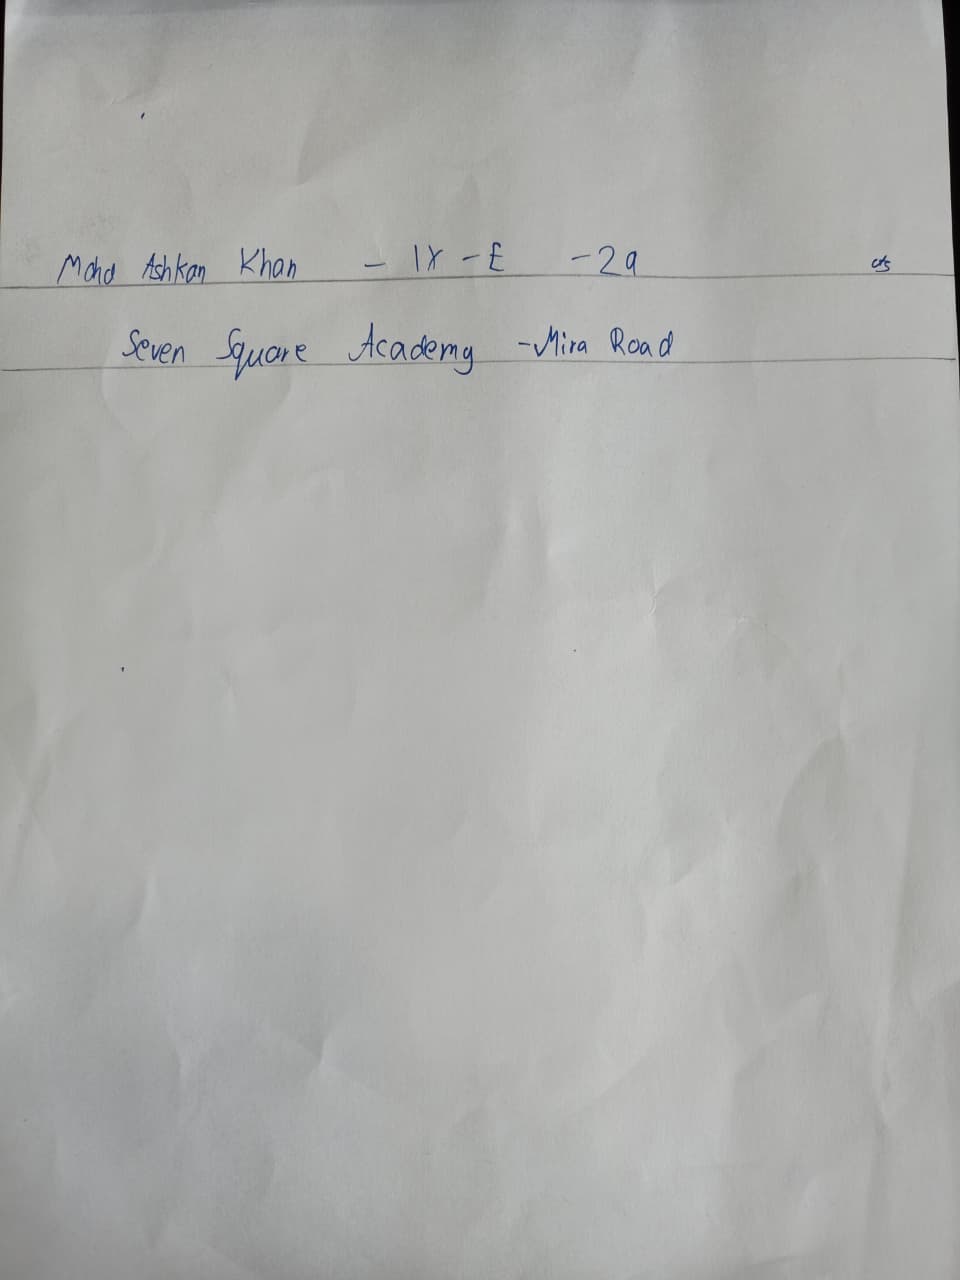 Mohd Ashkan Khan - IX - E - 29
Seven Square Academy - Mira Road